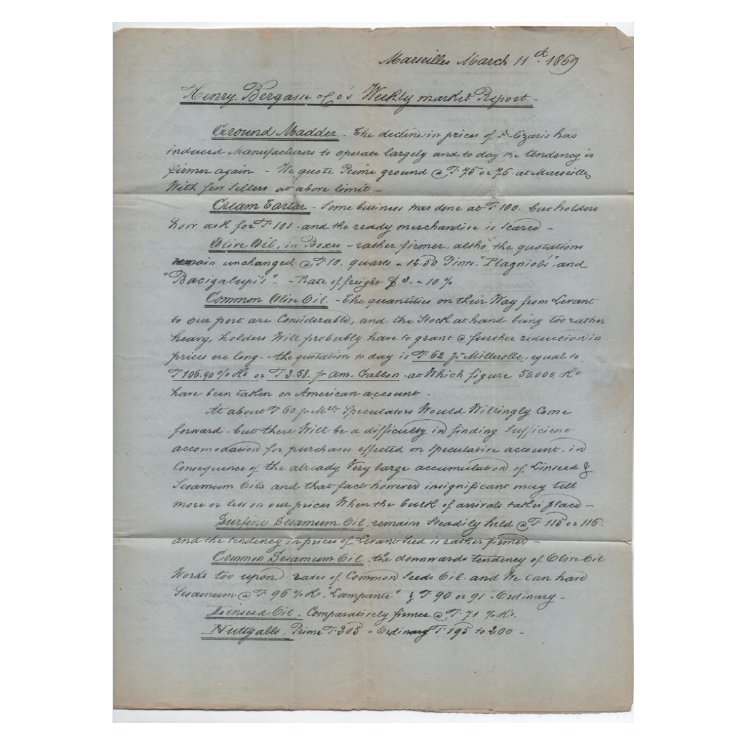 Marseilles March 11th 1859
Henry Bergasse & Co's Weekly market Report -
Ground Madder - The decline in prices of Alizaris has
induced Manufacturers to operate largely and to day the tendency is
firmer again - We quote Prime ground @ F 75 or 76 at Marseilles
With few Sellers at above limit -
Cream Tartar - Some business was done at F 100. but holders
now ask for F 101 - and the ready merchandise is scarce -
Olive Oil, in Boxes - rather firmer, altho' the quotations
remain unchanged @ F 10. quarts - 12.50 Pinn. "Plagniols" and
"Bacigalupi's". - Rate of freight 8. - 10 %
Common Olive Oil - The quantities on their Way from Levant
to our port are Considerable, and the Stock at hand being too rather
heavy, holders Will probably have to grant a further reduction in
prices ere long - the quotation to day is F 62 pr Millerolle, equal to
F 106.90 % Ko or F 3.58. pr Am. Gallon - at Which figure 50,000 Ko
have been taken on American account.
At about F 60 pr Mlle Speculators Would Willingly Come
forward, but there Will be a difficulty in finding Sufficient
accomodation for purchases effected on Speculative account, in
Consequence of the already Very large accumulation of Linseed &
Sesamum Oils and that fact however insignificant may tell
more or less on our prices When the bulk of arrivals takes place -
Surfine Sesamum Oil remains Steadily held @ F 115 or 116
and the tendency in prices of Levant Seed is rather firmer -
Common Sesamum Oil, the downwards tendency of Olive Oil
Works too upon rates of Common Seeds Oil and We can have
Sesamum @ F 96 % Ko "Lampante" & F 90 or 91 - Ordinary -
Linseed Oil - Comparatively firmer @ F 71 % Ko.
Nuttgalls. Prime F 205 - Ordinary F 195 to 200 -